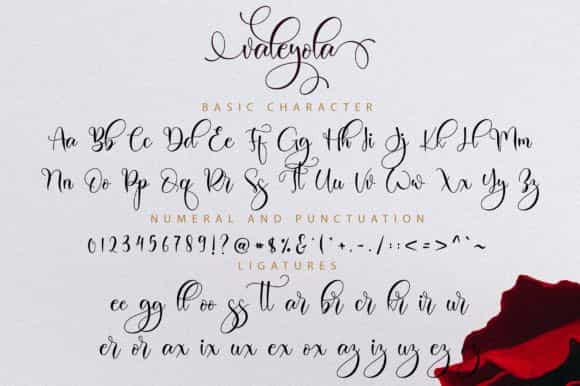 valeyola
BASIC CHARACTER
Aa Bb Cc Dd Ee Ff Gg Hh Ii Jj Kk Ll Mm
Nn Oo Pp Qq Rr Ss Tt Uu Vv Ww Xx Yy Zz
NUMERAL AND PUNCTUATION
0123456789!?@*#$%&'("+,-./:;<=>^`~
LIGATURES
ee gg ll oo ss tt ar br cr kr ir ur
er or ax ix ux ex ox az iz uz ez